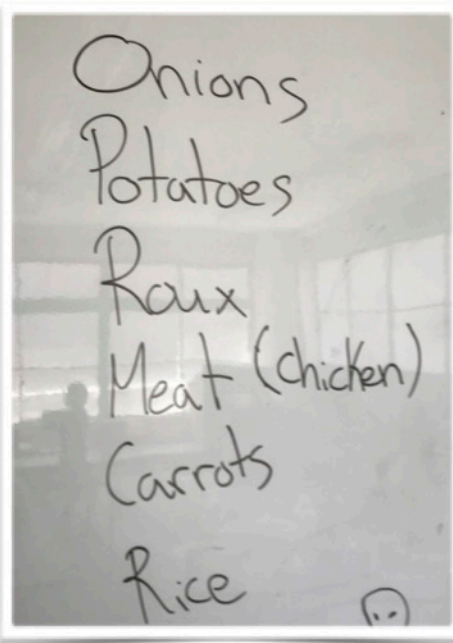 Onions
Potatoes
Roux
Meat (chicken)
Carrots
Rice